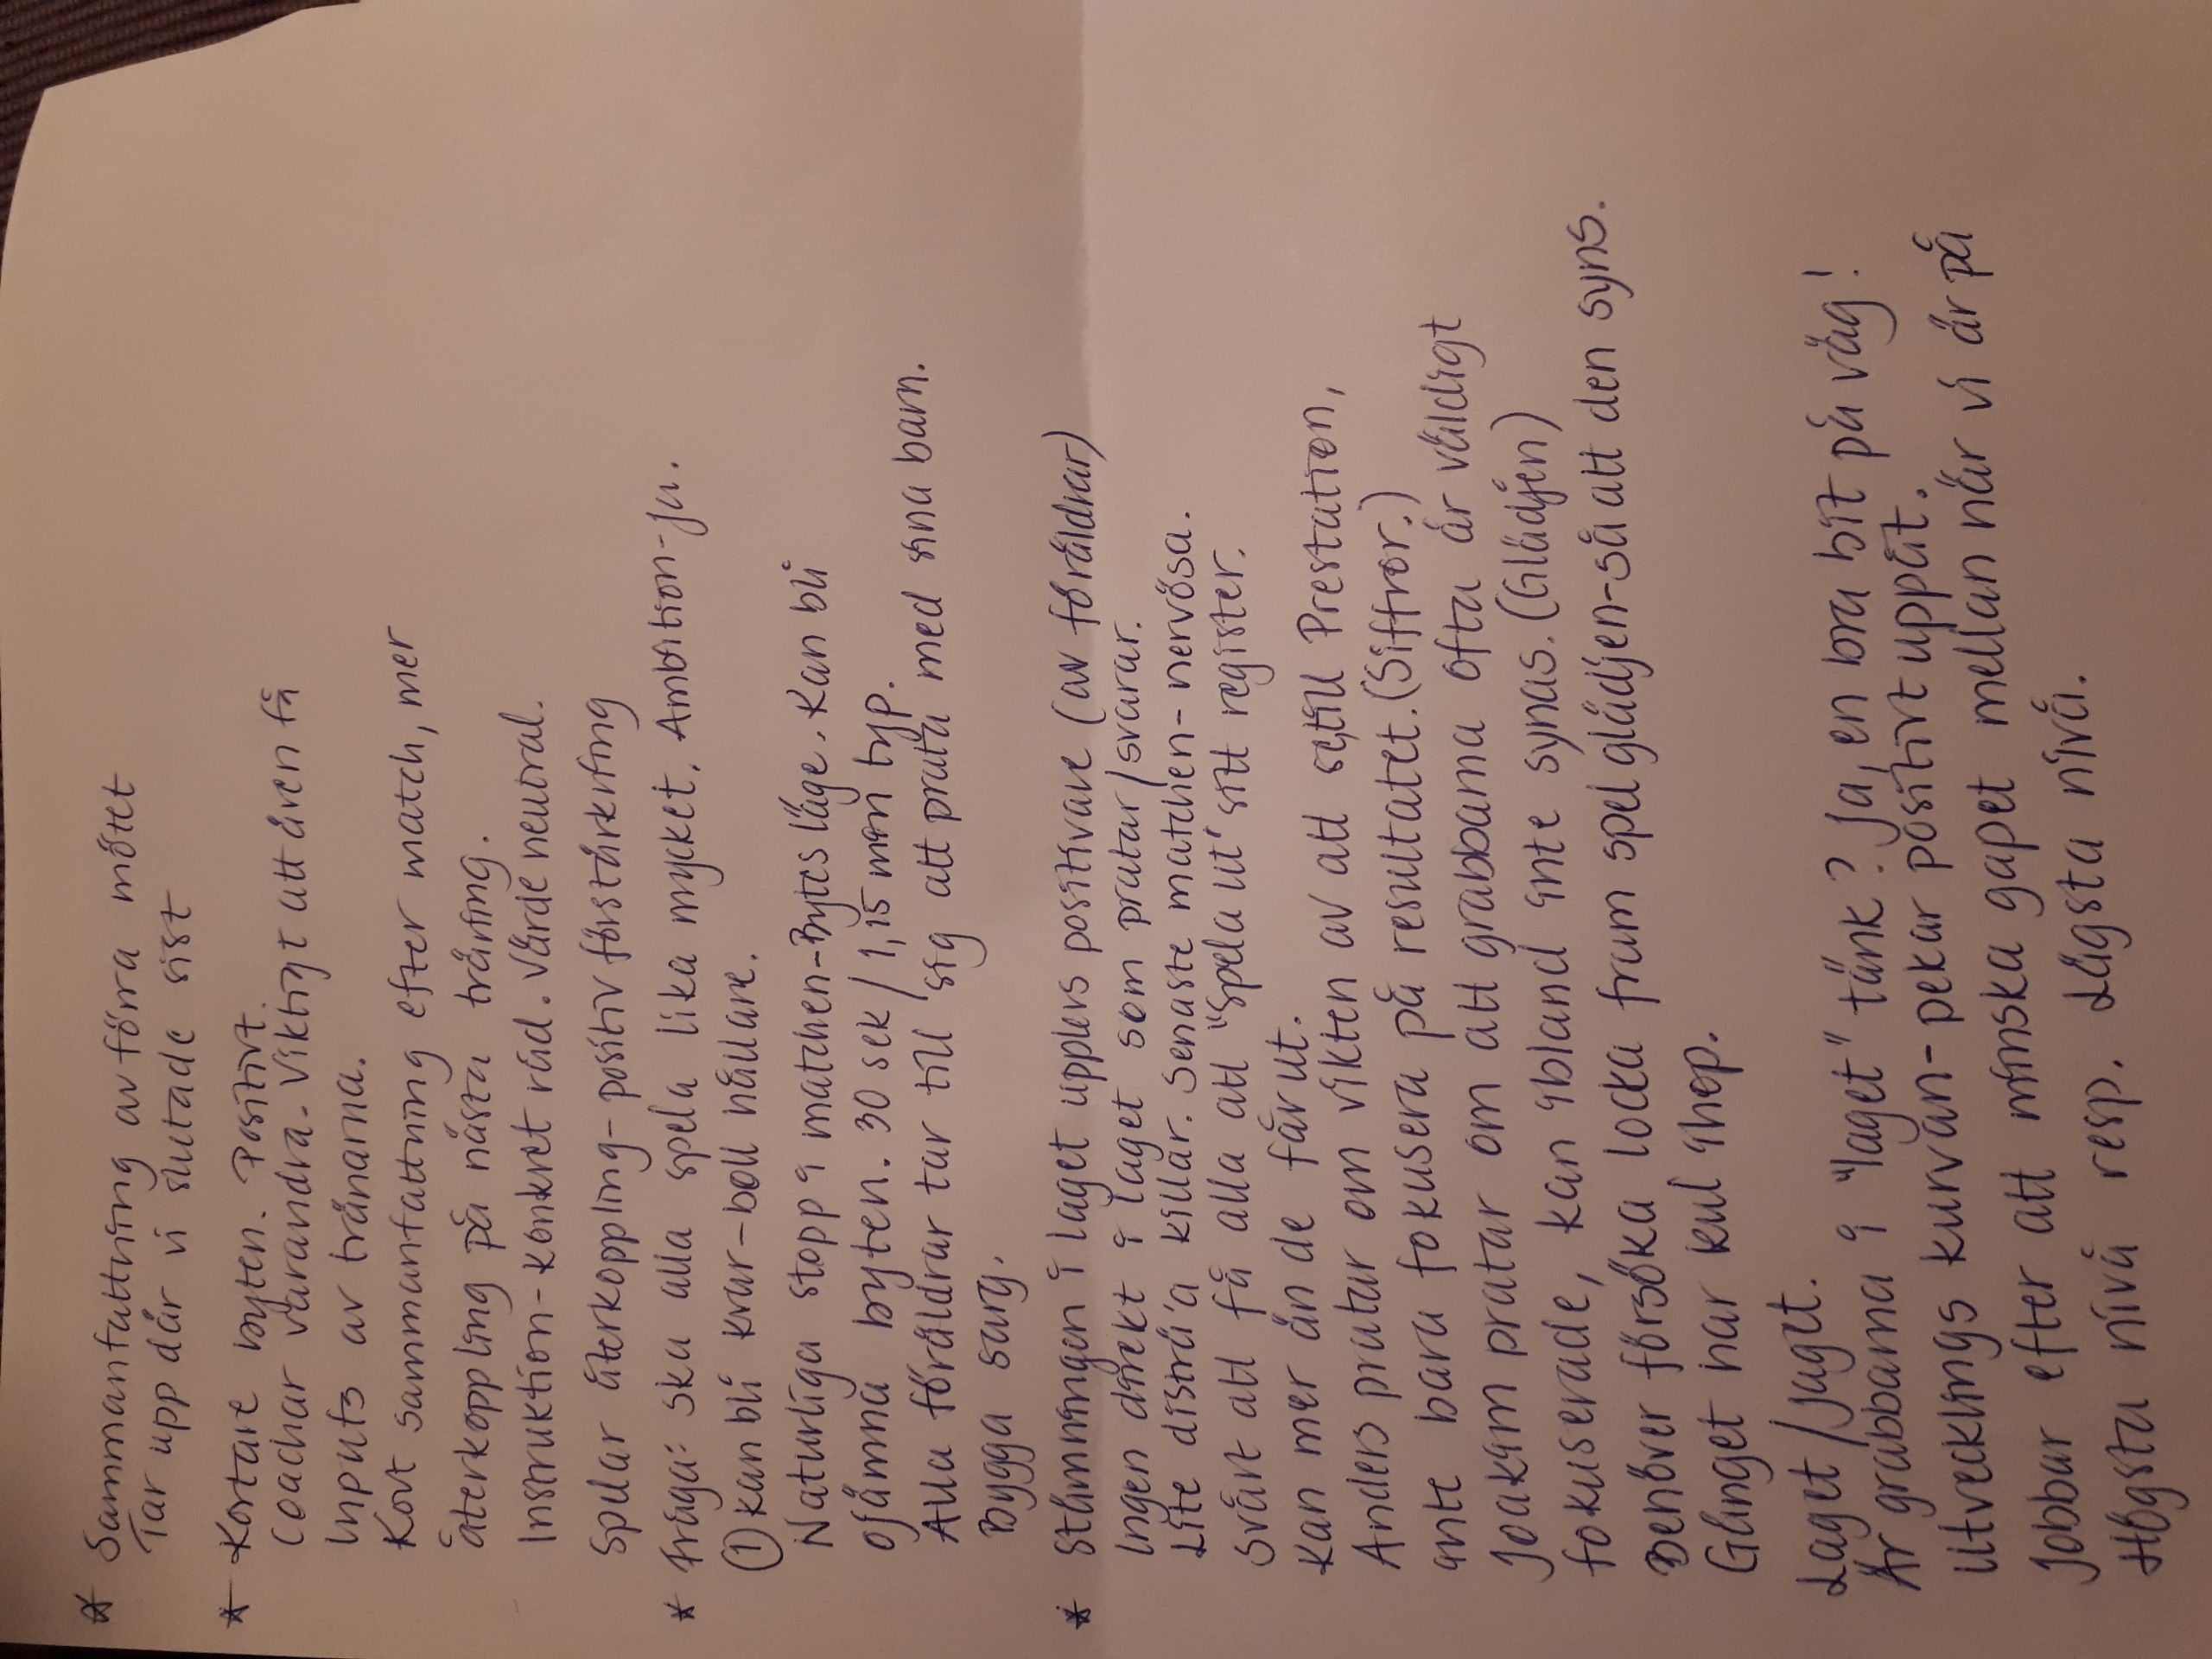 * Sammanfattning av förra mötet
Tar upp där vi slutade sist
* Kortare byten. Positivt.
Coachar varandra. Viktigt att även få
inputs av tränarna.
Kort sammanfattning efter match, mer
återkoppling på nästa träning.
Instruktion-konkret råd. Värde neutral.
Spelar återkoppling-positiv förstärkning
* Fråga: ska alla spela lika mycket. Ambition-Ja.
① Kan bli kvar-boll hållare.
Naturliga stopp i matchen-Bytesläge. Kan bli
ojämna byten. 30 sek/1,15 min typ.
Alla föräldrar tar till sig att prata med sina barn.
Bygga sarg.
* Stämningen i laget upplevs positivare (av föräldrar)
Ingen direkt i laget som pratar/svarar.
Lite disträ'a killar. Senaste matchen-nervösa.
Svårt att få alla att "spela ut" sitt register.
Kan mer än de får ut.
Anders pratar om vikten av att se till Prestation,
inte bara fokusera på resultatet. (Siffror.)
Joakim pratar om att grabbarna ofta är väldigt
fokuserade, kan ibland inte synas. (Glädjen)
Behöver försöka locka fram spelglädjen-så att den syns.
Gänget har kul ihop.
Laget/jaget.
Är grabbarna i "laget" tänk? Ja, en bra bit på väg!
Utvecklings kurvan-pekar positivt uppåt.
Jobbar efter att minska gapet mellan när vi är på
Högsta nivå resp. Lägsta nivå.